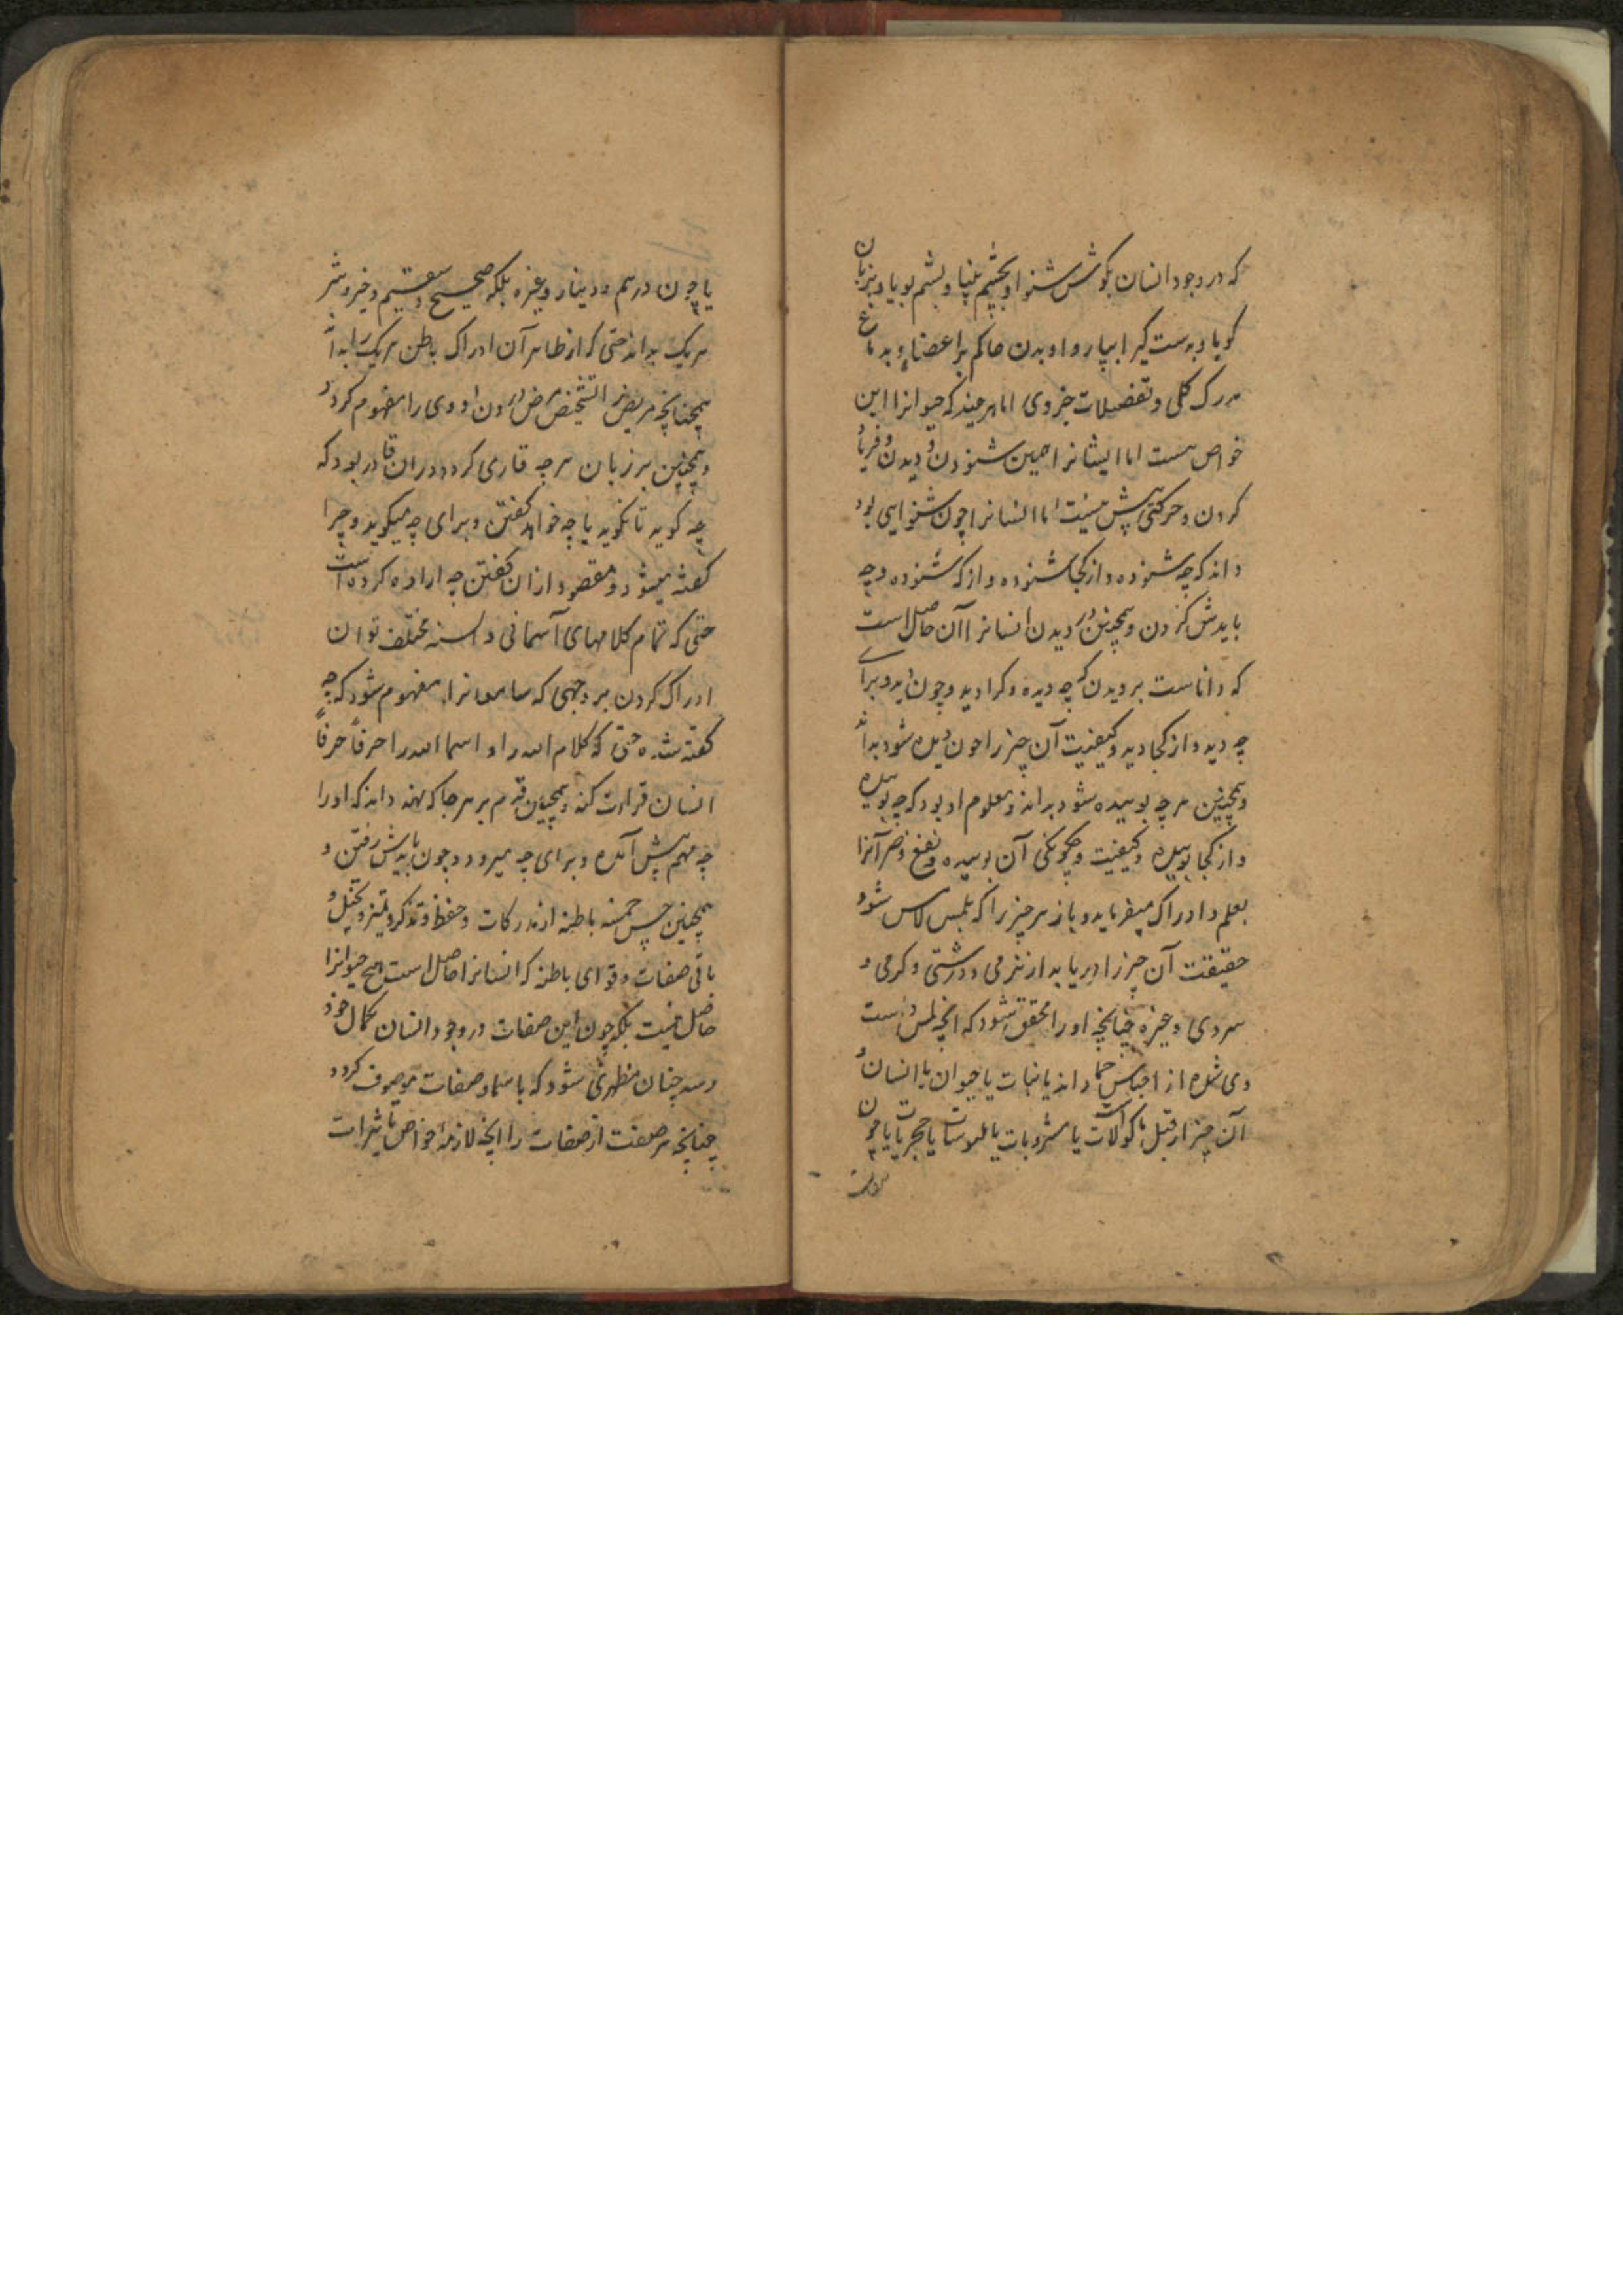 که در وجود انسان بگوش شنوا و بچشم بینا و بشم بویا و بزبان
گویا و بدست گیرا بپا روا و بدن حاکم بر اعضا و بدماغ
مدرک کلی و تفضیلات جزوی اما هر چند که حیوانرا این
خواص هست اما ایشانرا همین شنودن و دیدن و فریاد
کردن و حرکتی بیش نیست اما انسانرا چون شنوایی بود
داند که چه شنوده و از کجا شنوده و از که شنوده و چه
بایدش کردن و همچنین در دیدن انسانرا آن حاصل است
که داناست بر دیدن که چه دیده و کرا دید و چون دید و برای
چه دید و از کجا دید و کیفیت آن چیز را چون دیده شود بداند
و همچنین هر چه بوییده شود بداند و معلوم او بود که چه بوییده
و از کجا بوییده و کیفیت و چگونگی آن بوییده و نفع و ضر آنرا
بعلم و ادراک میفرماید و باز هر چیز را که بلمس لامس شود
حقیقت آن چیز را دریابد از نرمی و درشتی و گرمی و
سردی و غیره چنانچه او را محقق شود که آنچه لمس دست
وی شده از اجناس جماد اند یا نبات یا حیوان یا انسان و
آن چیز از قبیل ماکولات است یا مشروبات یا ملبوسات یا حجریات یا چون
یا چون درهم و دینار و غیره بلکه صحیح و سقیم و خیر و شر
هر یک بداند حتی که از ظاهر آن ادراک باطن هر یک را بداند
همچنانچه مریض را تشخیص مرض درون او وی را مفهوم گردد
و همچنین بر زبان هر چه قاری گردد در آن قادر بود که
چه گوید تا نگوید یا چه خواهد گفتن و برای چه میگوید و چرا
گفته میشود و مقصود از آن گفتن چه اراده کرده است
حتی که تمام کلامهای آسمانی و السنه مختلف توان
ادراک کردن بر وجهی که سامعانرا مفهوم شود که چه
گفته شده حتی که کلام الله را و اسما الله را حرفاً حرفاً
انسان قرائت کند و همچنین قدم بر هر جا که نهد داند که او را
چه مهم پیش آمده و برای چه میرود و چون بایدش رفتن و
همچنین حس خمسه باطنه از مدرکات و حفظ و تذکر و تمیز و تخیل و
باقی صفات و قوای باطنه که انسانرا حاصل است هیچ حیوانرا
حاصل نیست بلکه چون این صفات در وجود انسان بکمال خود
رسد چنان مظهری شود که باسما و صفات موصوف گردد
چنانچه هر صفت از صفات را آنچه لازمه خواص تاثیرات